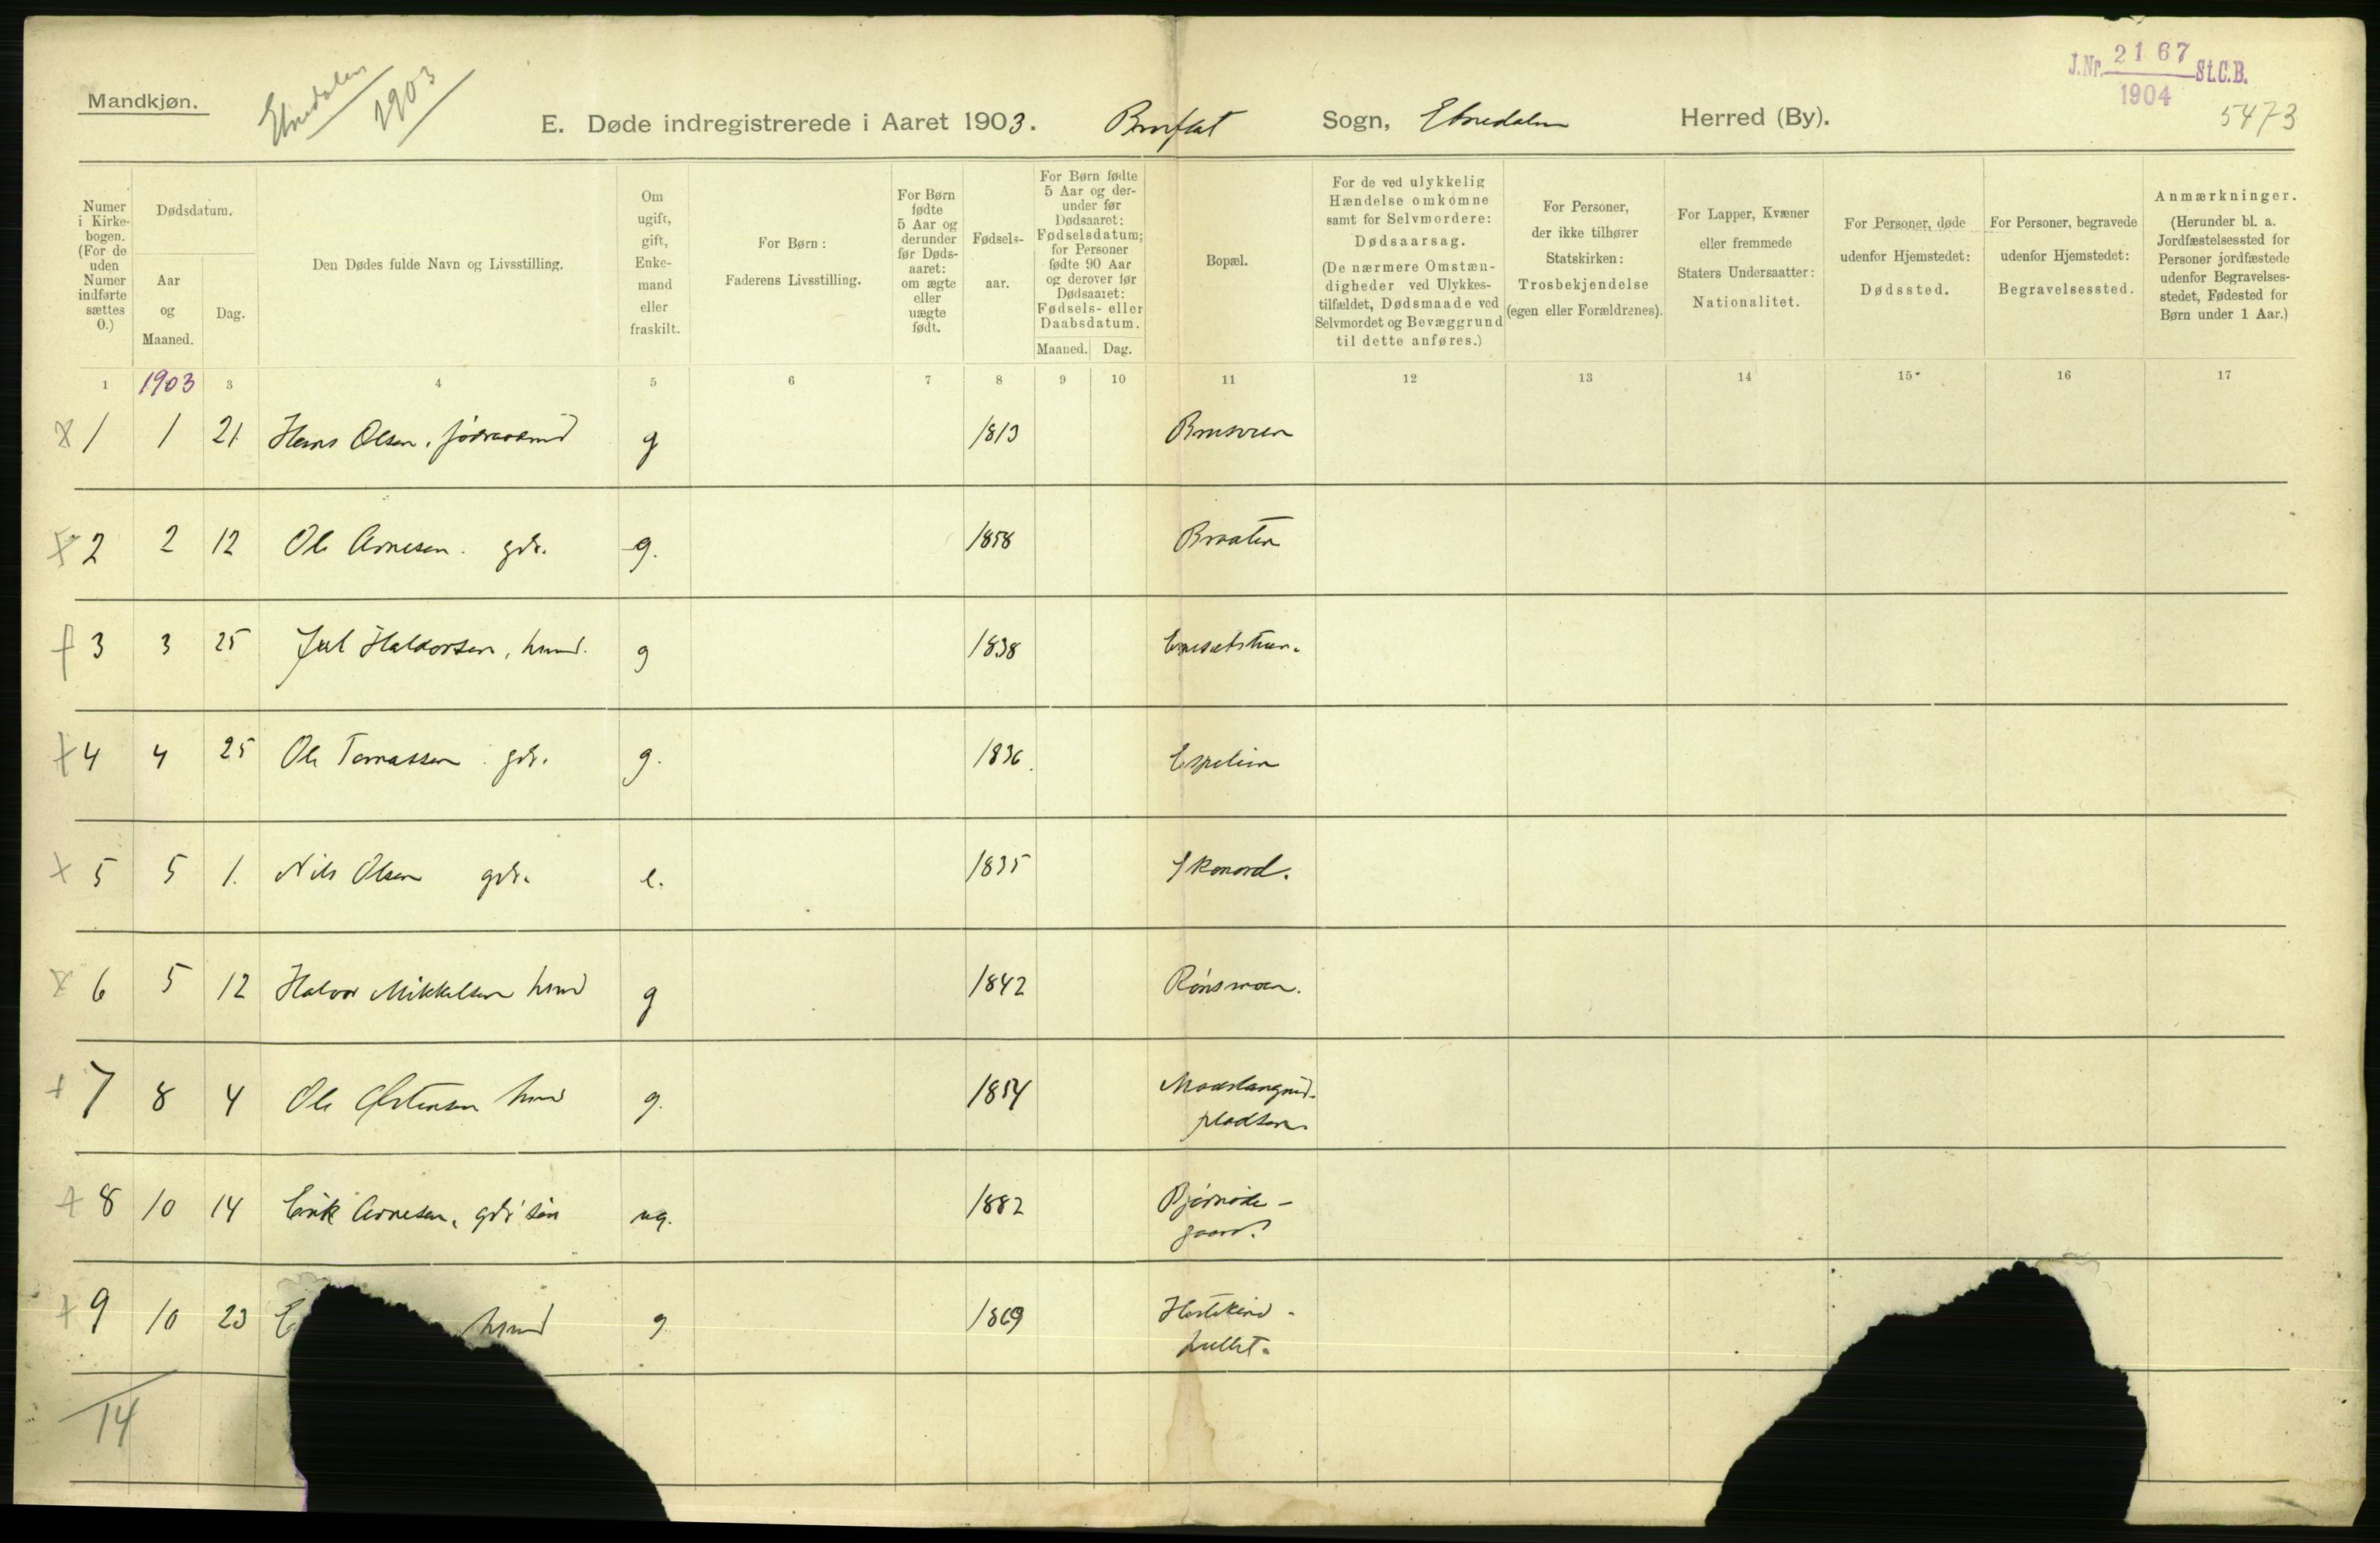 Mandkjøn.
Etnedalen
1903
E. Døde indregistrerede i Aaret 1903. Bruflat Sogn, Etnedalen Herred (By).
J.Nr. 2167 St.C.B.
1904
5473
Numer i Kirkebogen. (For de uden Numer indførte sættes 0.)
Dødsdatum.
Aar og Maaned.
Dag.
Den Dødes fulde Navn og Livsstilling.
Om ugift, gift, Enkemand eller fraskilt.
For Børn: Faderens Livsstilling.
For Børn fødte 5 Aar og derunder før Dødsaaret: om ægte eller uægte født.
Fødselsaar.
For Børn fødte 5 Aar og derunder før Dødsaaret: Fødselsdatum; for Personer fødte 90 Aar og derover før Dødsaaret: Fødsels- eller Daabsdatum.
Maaned. Dag.
Bopæl.
For de ved ulykkelig Hændelse omkomne samt for Selvmordere: Dødsaarsag. (De nærmere Omstændigheder ved Ulykkestilfældet, Dødsmaade ved Selvmordet og Bevæggrund til dette anføres.)
For Personer, der ikke tilhører Statskirken: Trosbekjendelse (egen eller Forældrenes).
For Lapper, Kvæner eller fremmede Staters Undersaatter: Nationalitet.
For Personer, døde udenfor Hjemstedet: Dødssted.
For Personer, begravede udenfor Hjemstedet: Begravelsessted.
Anmærkninger. (Herunder bl. a. Jordfæstelsessted for Personer jordfæstede udenfor Begravelsesstedet, Fødested for Børn under 1 Aar.)
1 1903 3 4 5 6 7 8 9 10 11 12 13 14 15 16 17
1 1 21 Hans Olsen, g 1813
2 2 12 Ole Arnesen. gdr. g. 1858 Braaten
3 3 25 Jul Haldorsen, hmd. g 1838
4 4 25 Ole Tomassen gdr. g. 1836. Espelien
5 5 1. Nils Olsen gdr. e. 1835 Skonord.
6 5 12 Halvor Mikkelsen hmd g 1842 Rønsmoen.
7 8 4 Ole Østensen hmd g. 1854
pladsen.
8 10 14 Erik Arnesen, gdr søn ug. 1882
gaard.
9 10 23 E hmd g 1869
hullet.
14